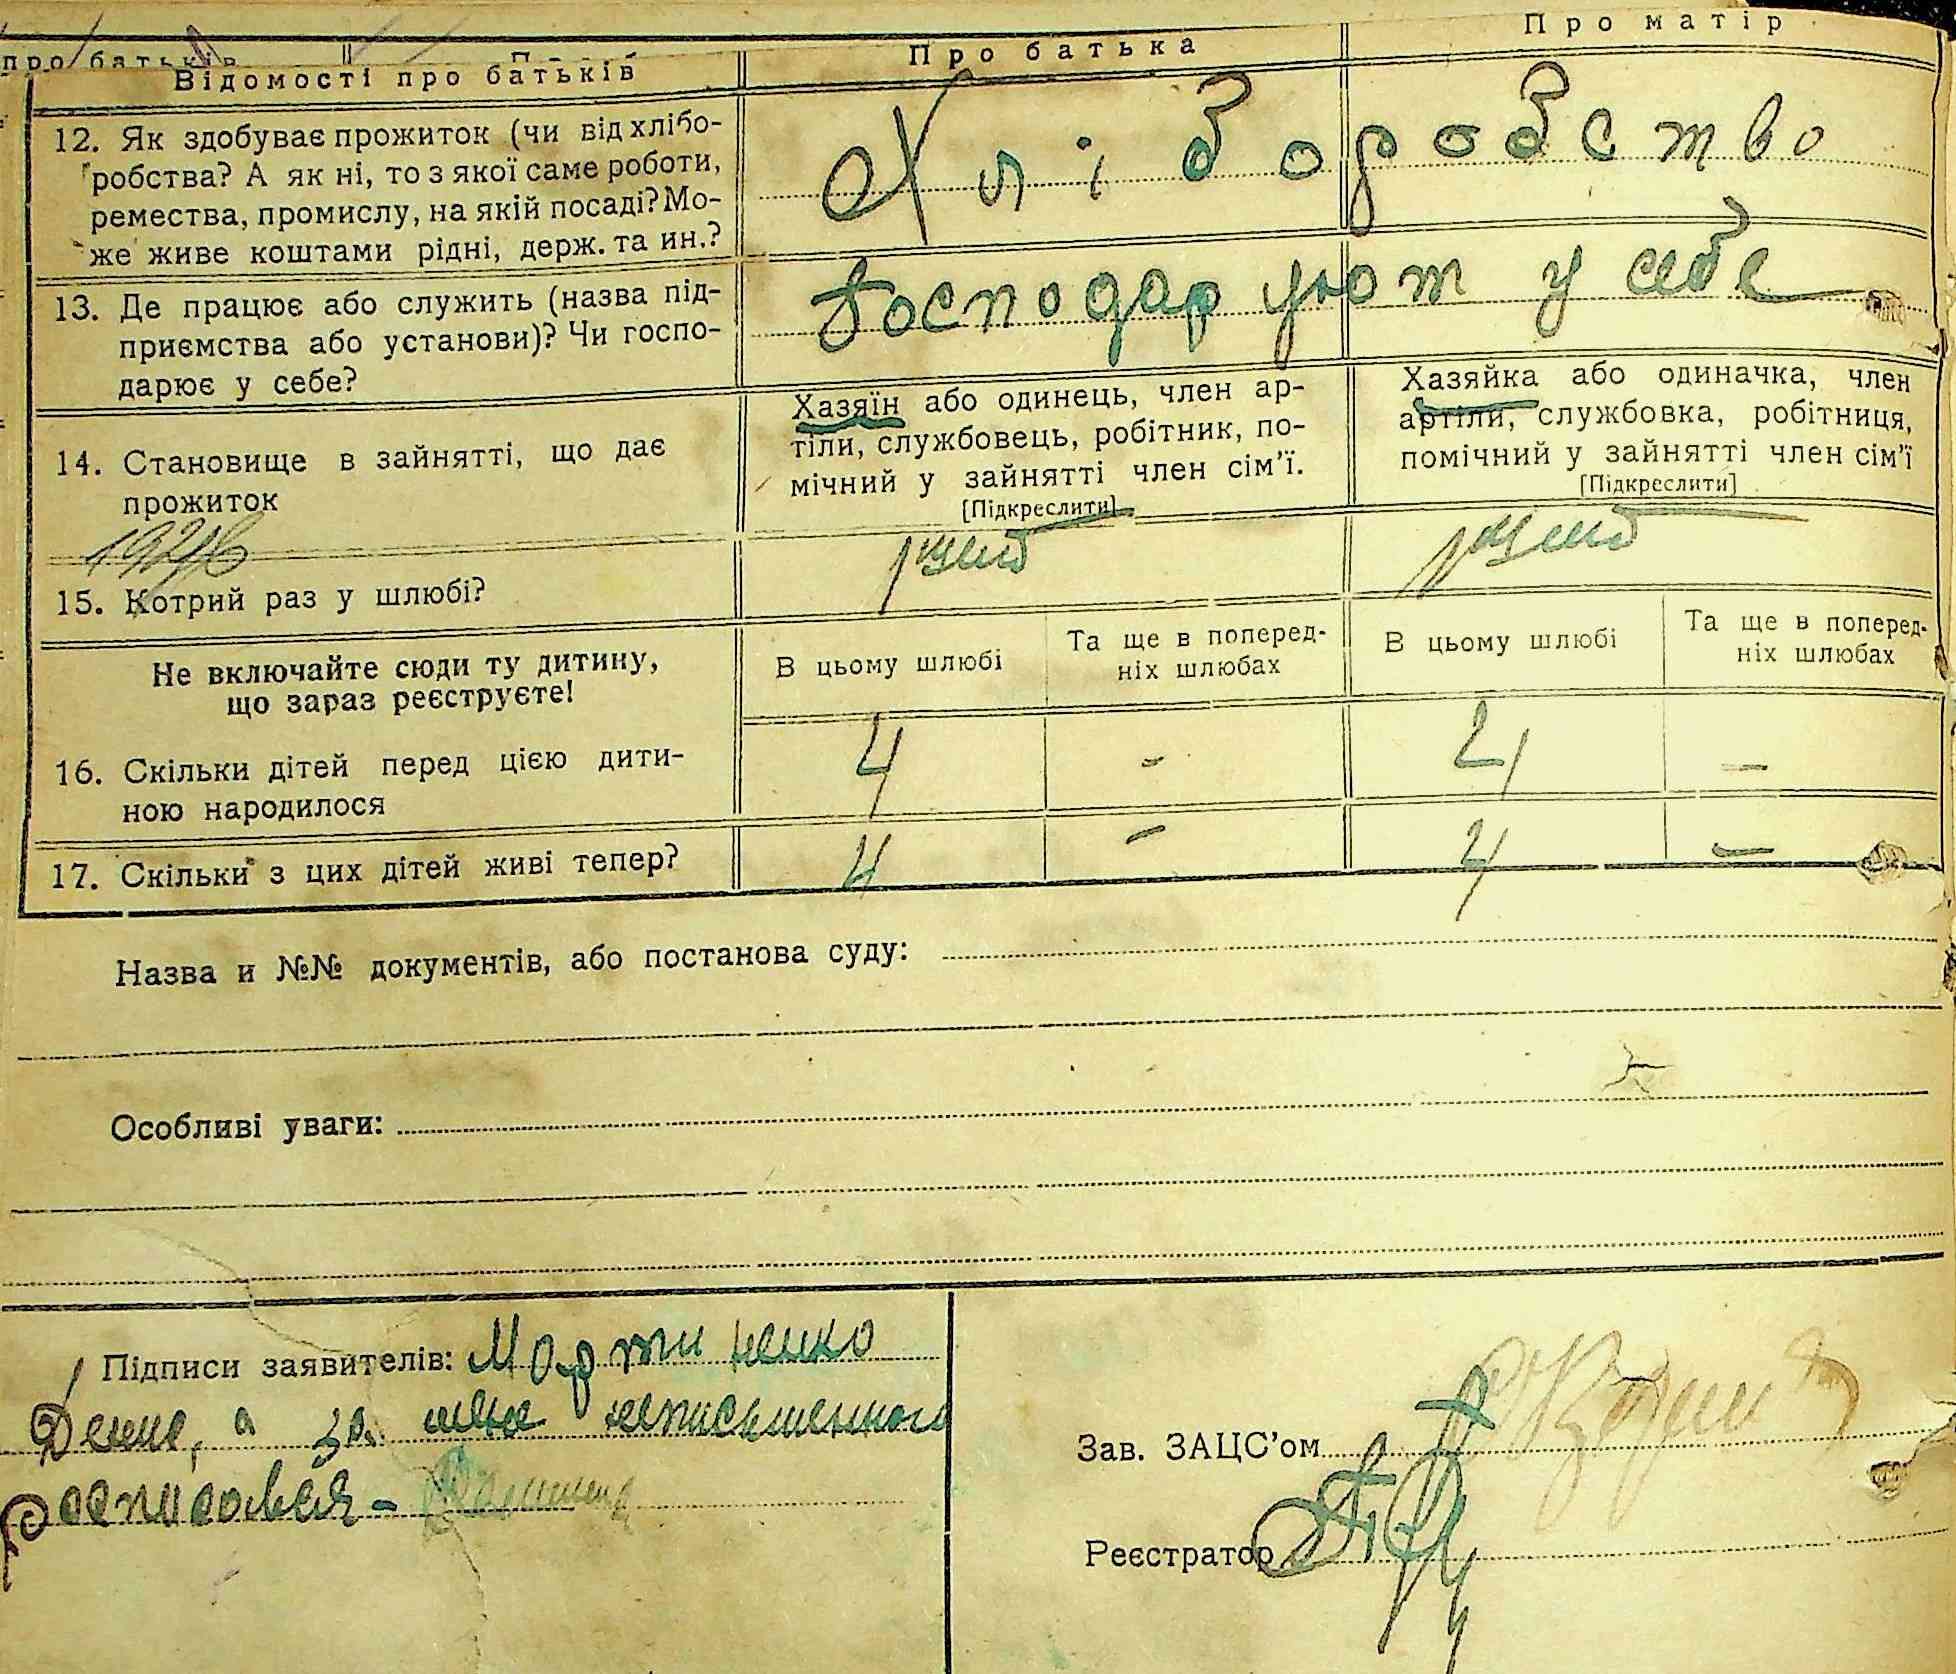 Відомості про батьків
Про батька
Про матір
12. Як здобуває прожиток (чи від хлібо-
робства? А як ні, то з якої саме роботи,
ремества, промислу, на якій посаді? Мо-
же живе коштами рідні, держ. та ин.?
Хліборобство
13. Де працює або служить (назва під-
приємства або установи)? Чи госпо-
дарює у себе?
Господарують у себе
14. Становище в зайнятті, що дає
прожиток
Хазяїн або одинець, член ар-
тіли, службовець, робітник, по-
мічний у зайнятті член сім'ї.
[Підкреслити]
Хазяйка або одиначка, член
артіли, службовка, робітниця,
помічний у зайнятті член сім'ї
[Підкреслити]
15. Котрий раз у шлюбі?
Не включайте сюди ту дитину,
що зараз реєструєте!
В цьому шлюбі
Та ще в поперед-
ніх шлюбах
В цьому шлюбі
Та ще в поперед-
ніх шлюбах
16. Скільки дітей перед цією дити-
ною народилося
4 - 4 -
17. Скільки з цих дітей живі тепер?
4 - 4 -
Назва и №№ документів, або постанова суду:
Особливі уваги:
Підписи заявителів: Мартиненко
Денис, а за неписьменного
росписовся -
Зав. ЗАЦС'ом
Реєстратор